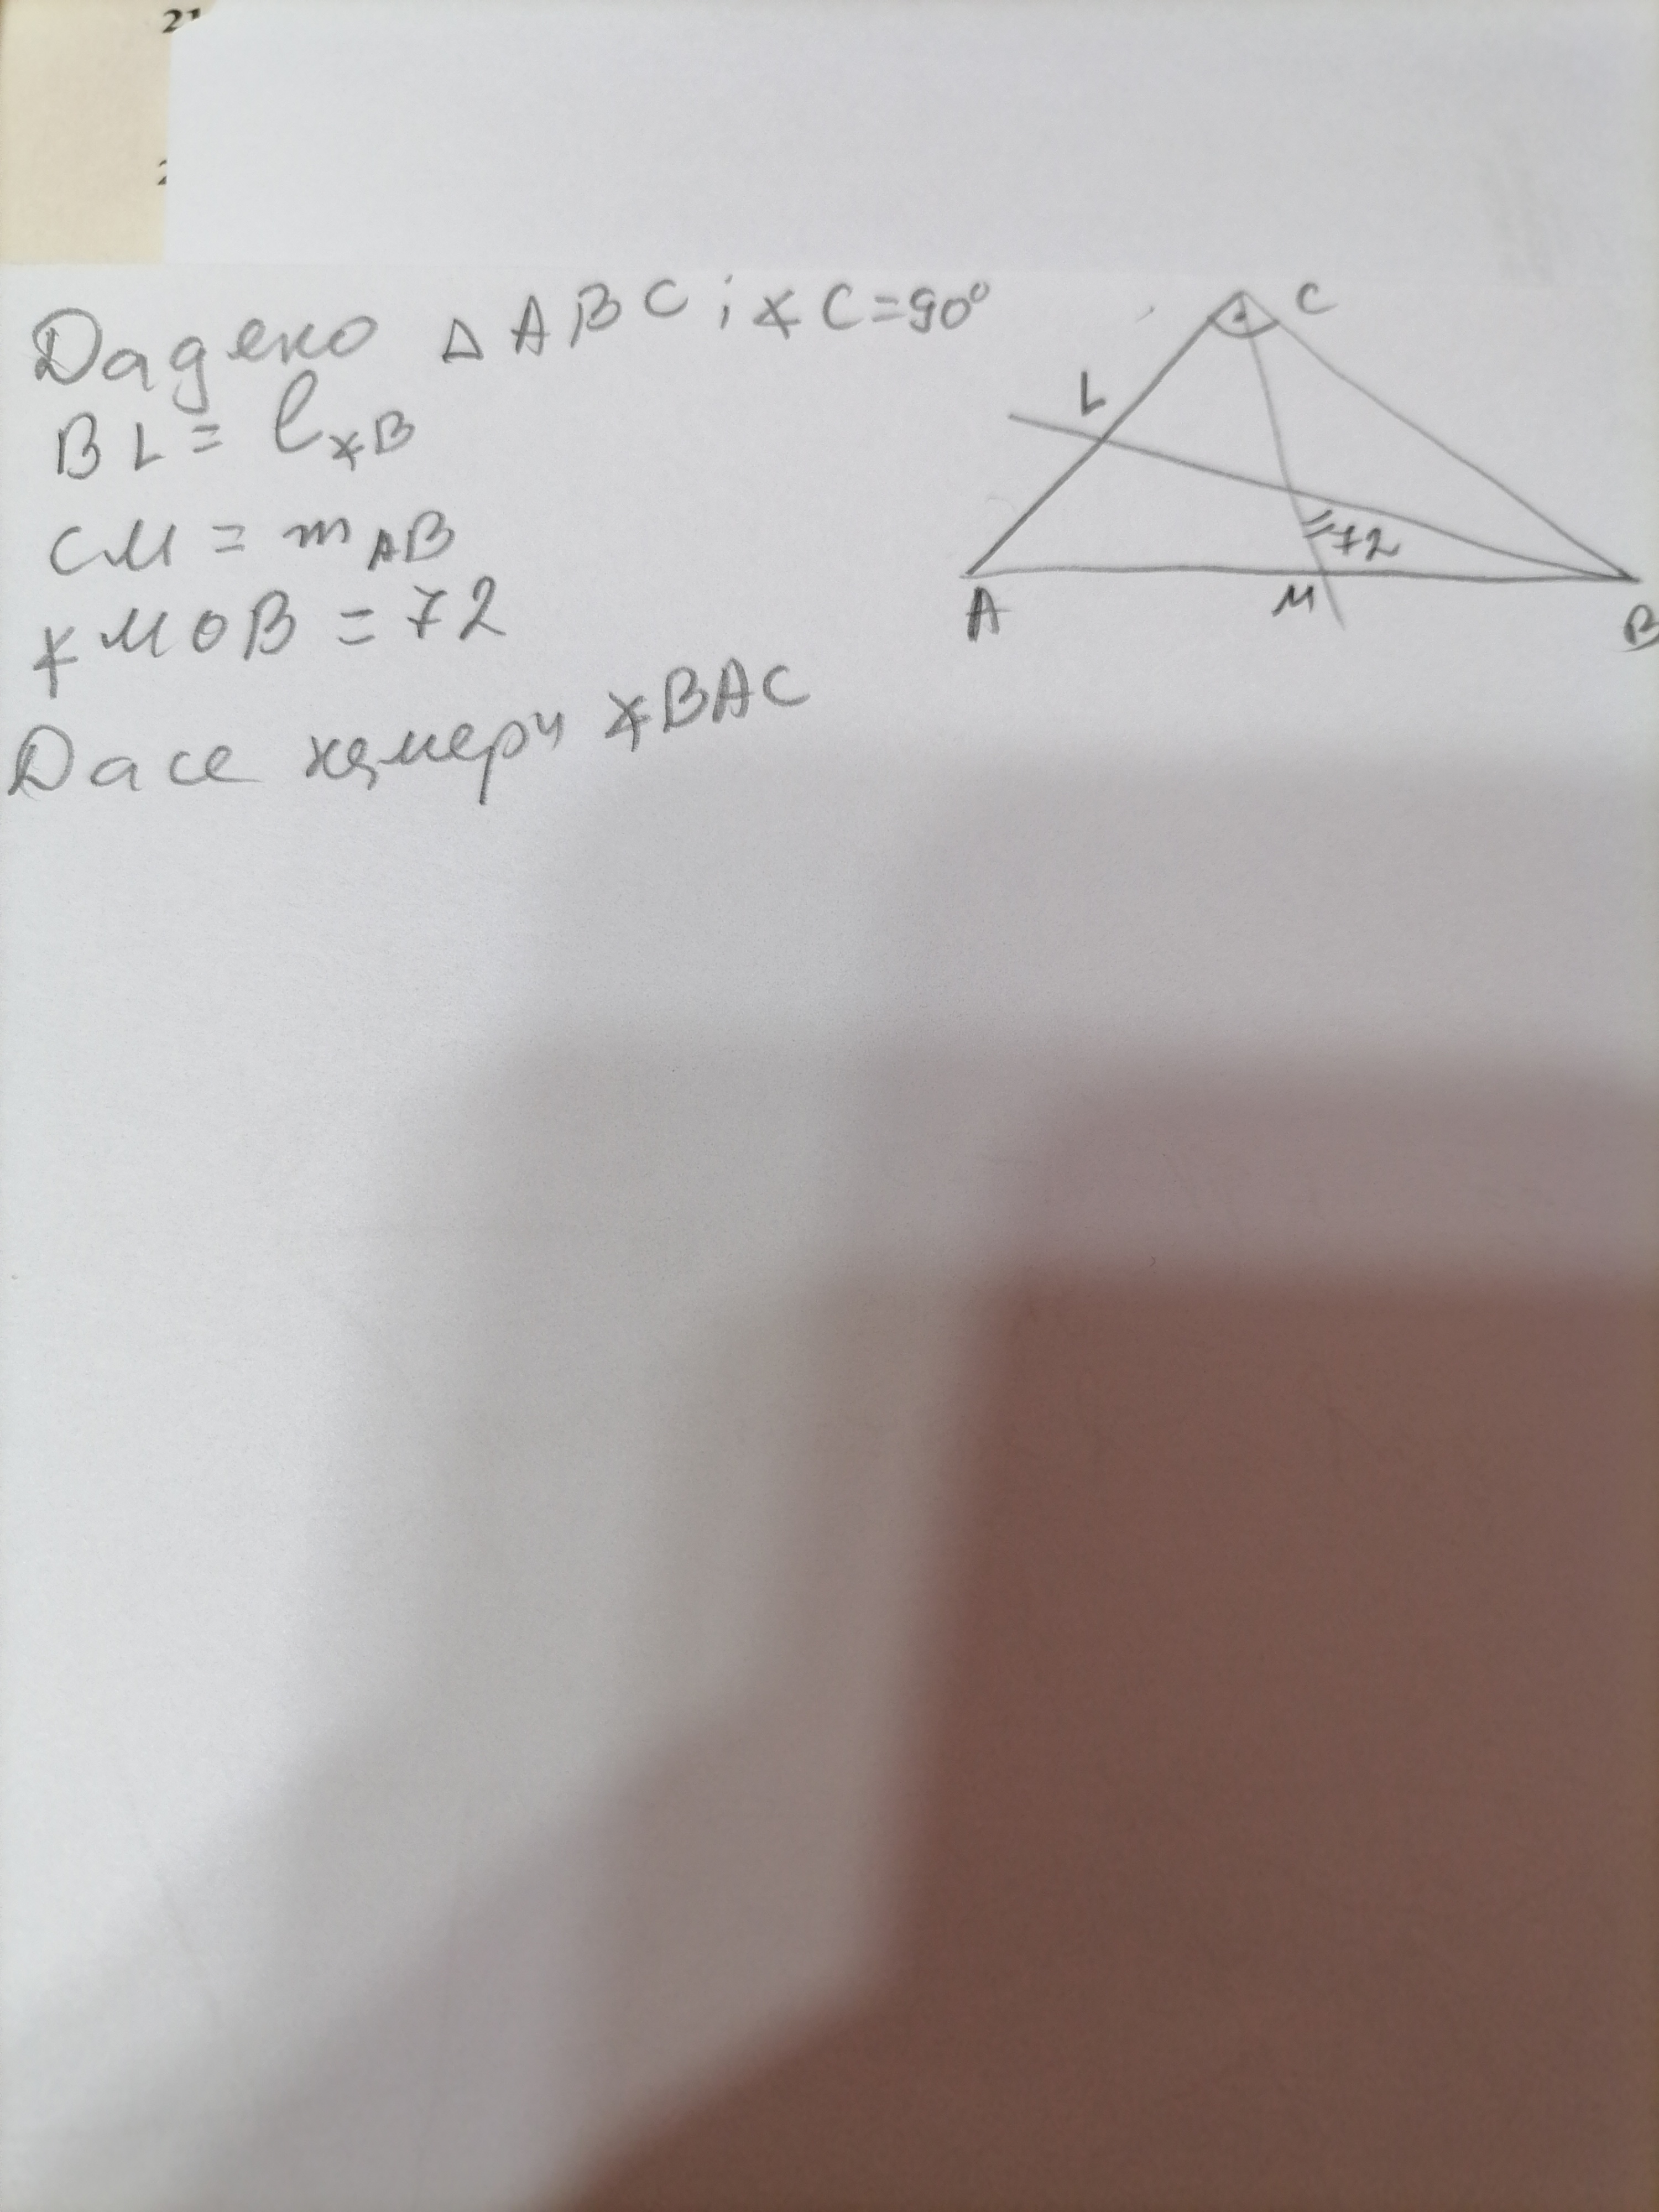 21
Дадено △ABC; ∢C=90°
BL = l∢B
CM = mAB
∢MOB = 72
Да се намери ∢BAC
C
L
72
A
M
B